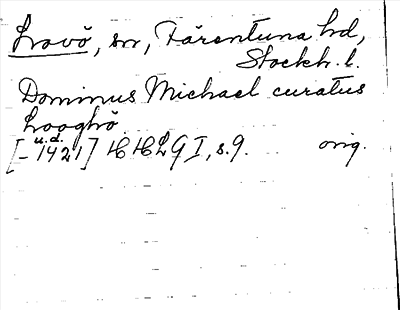 Lovö, sn, Färentuna hd,
Stockh. l.
Dominus Michael curatus
Looghö
u.d.
[-1421] HHLG I, s. 9. orig.